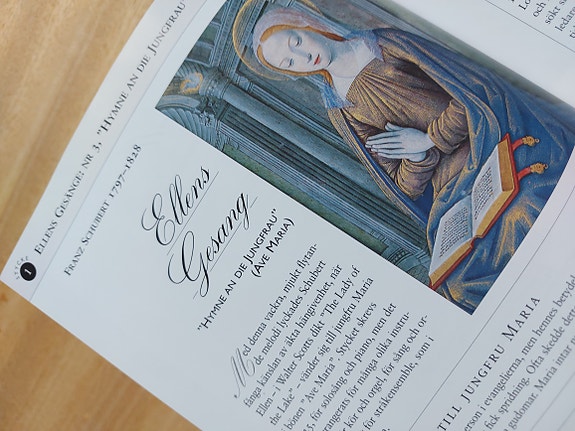 ELLENS GESÄNGE: NR 3, "HYMNE AN DIE JUNGFRAU"
FRANZ SCHUBERT 1797–1828
1
Ellens
Gesang
"HYMNE AN DIE JUNGFRAU"
(AVE MARIA)
Med denna vackra, mjukt flytan-
de melodi lyckades Schubert
fånga känslan av äkta hängivenhet, när
Ellen – i Walter Scotts dikt "The Lady of
the Lake" – vänder sig till jungfru Maria
bönen "Ave Maria". Stycket skrevs
5, för solosång och piano, men det
arrangerats för många olika instru-
kör och orgel, för sång och or-
för stråkensemble, som i
TILL JUNGFRU MARIA
person i evangelierna, men hennes betydel
fick spridning. Ofta skedde dett
gudomar. Maria intar r
Lo
och
sökt s
ledars
ti